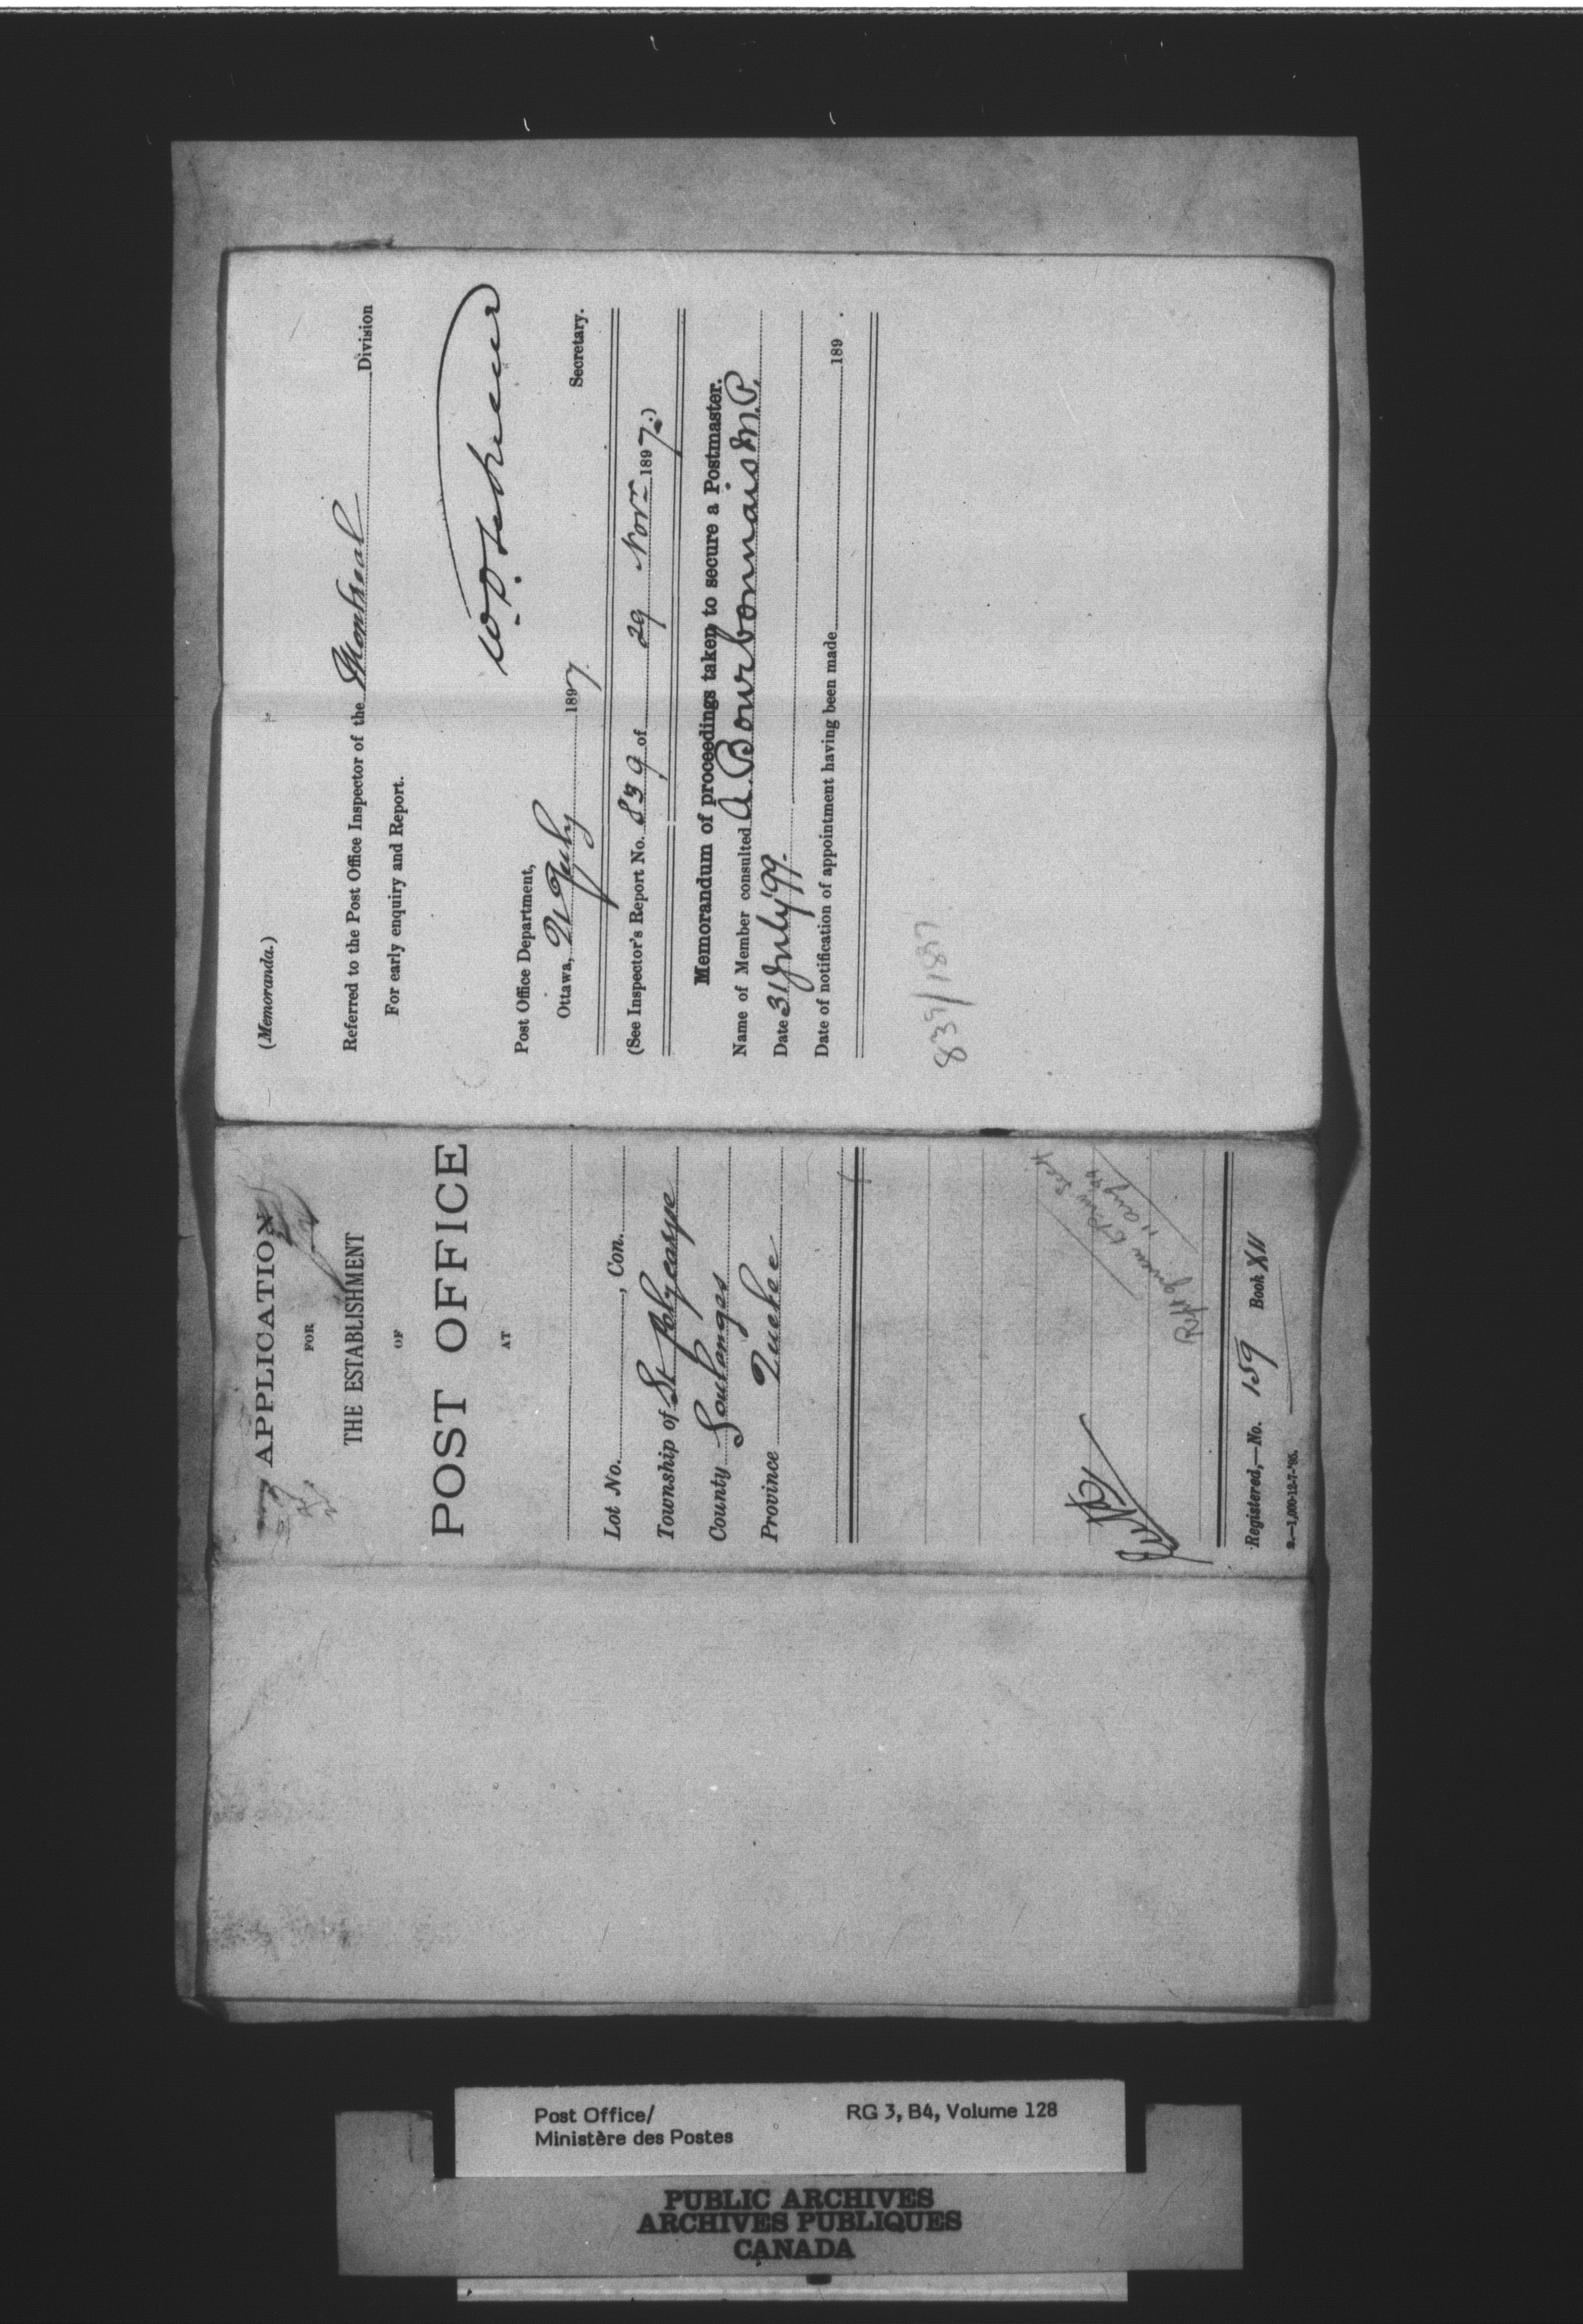 (Memoranda.)
Referred to the Post Office Inspector of the Montreal Division
For early enquiry and Report.
Secretary.
Post Office Department,
Ottawa, 21 July 1897
(See Inspector's Report No. 839 of 29 Novr 1897.)
Memorandum of proceedings taken to secure a Postmaster.
Name of Member consulted A. Bourbonnais M.P.
Date 31 July '99.
Date of notification of appointment having been made 189 .
839/1897
APPLICATION
FOR
THE ESTABLISHMENT
OF
POST OFFICE
AT
Lot No. , Con.
Township of St Polycarpe
County Soulanges
Province Quebec
11 Aug 99
Registered,—No. 159 Book XII
Post Office/
Ministère des Postes
RG 3, B4, Volume 128
PUBLIC ARCHIVES
ARCHIVES PUBLIQUES
CANADA